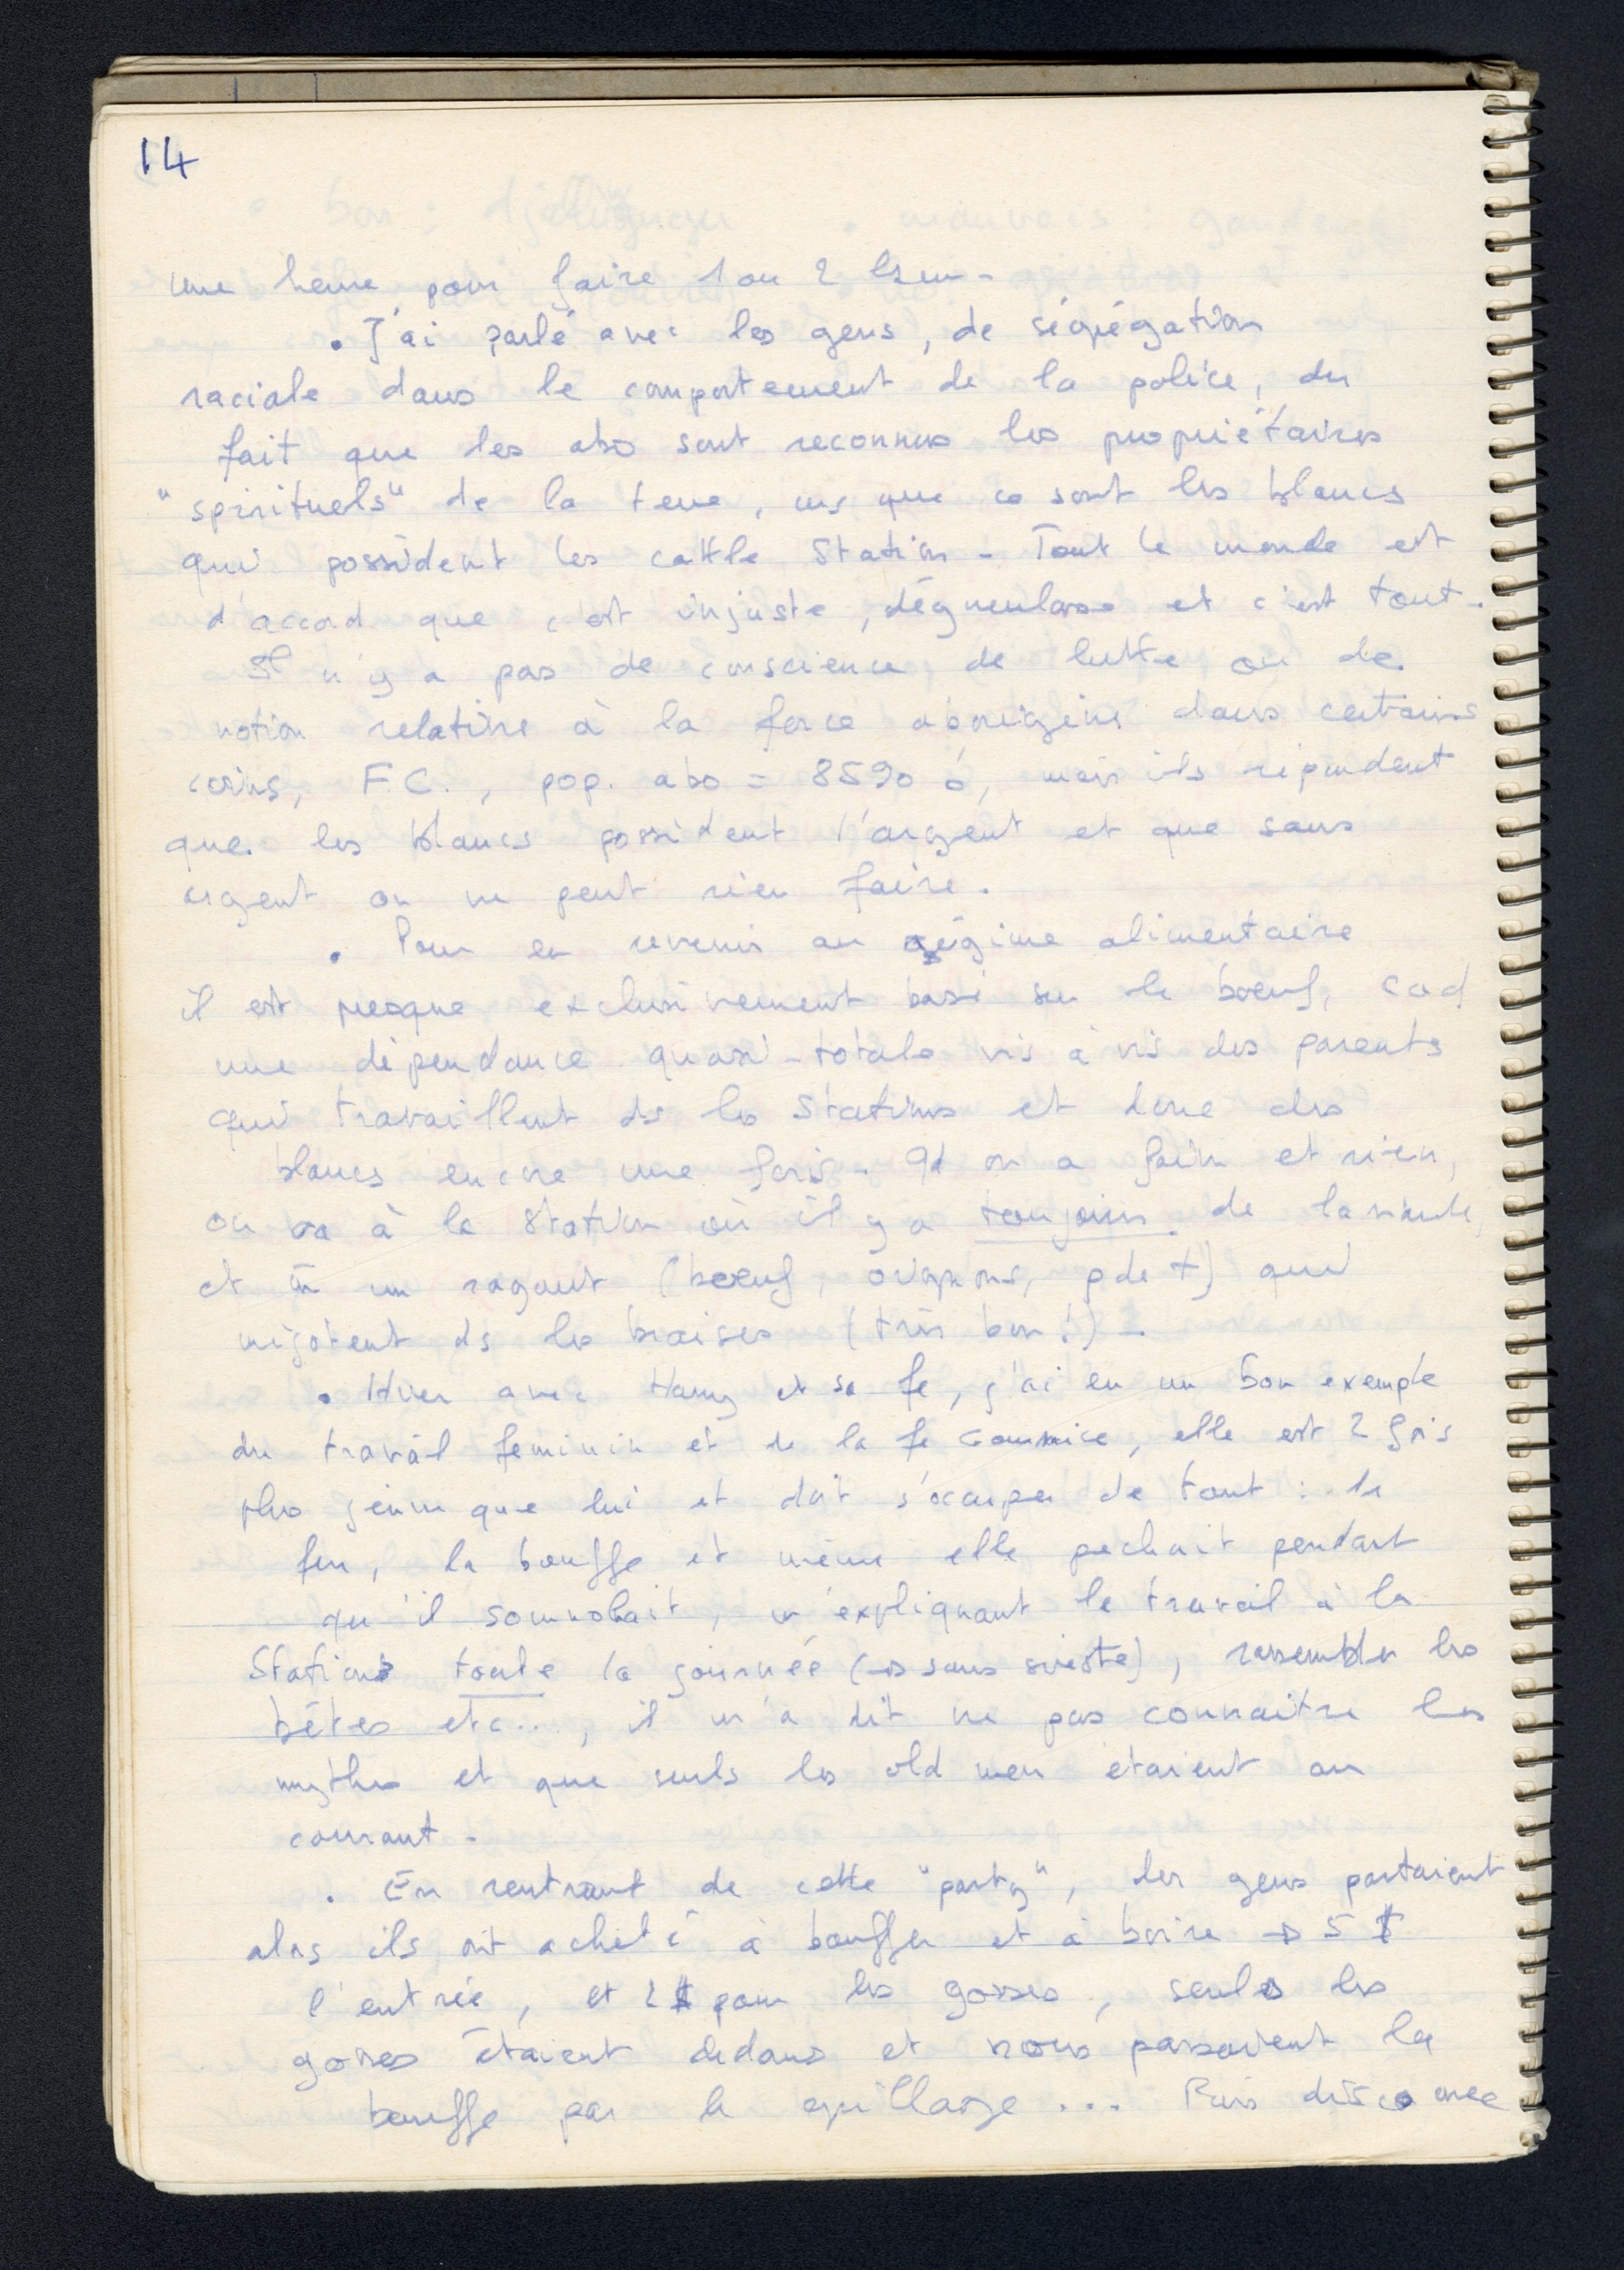 14
une heure pour faire 1 ou 2 km.
. J'ai parlé avec les gens, de ségrégation
raciale dans le comportement de la police, du
fait que les abo sont reconnus les propriétaires
"spirituels" de la terre, ms que ce sont les blancs
qui possèdent les cattle Station - Tout le monde est
d'accord que c'est injuste, dégueulasse et c'est tout.
Il n'y a pas de conscience de lutte ou de
notion relative à la force aborigène dans certains
coins, F.C., pop. abo = 85%, mais ils répondent
que les blancs possèdent l'argent et que sans
argent on ne peut rien faire.
. Pour en revenir au régime alimentaire
il est presque exclusivement basé sur le boeuf, cad
une dépendance quasi-totale vis à vis des parents
qui travaillent ds les Stations et donc des
blancs encore une fois. Qd on a faim et rien,
on va à la Station où il y a toujours de la viande,
et un ragout (boeuf, oignons, p de t) qui
mijotent ds les braises (très bon!) -
. Hier avec Harry et sa fe, j'ai eu un bon exemple
du travail feminin et de la fe soumise, elle est 2 fois
plus jeune que lui et doit s'occuper de tout : le
feu, la bouffe et même elle pechait pendant
qu'il somnolait, m'expliquant le travail à la
Station toute la journée (→ sans sieste), rassembler les
bêtes etc..., il m'a dit ne pas connaitre les
mythes et que seuls les old men étaient au
courant -
. En rentrant de cette "party", les gens partaient
alors ils ont acheté à bouffer et à boire → 5 $
l'entrée, et 2 $ pour les gosses, seuls les
gosses étaient dedans et nous passaient la
bouffe par le grillage ... Puis disco avec